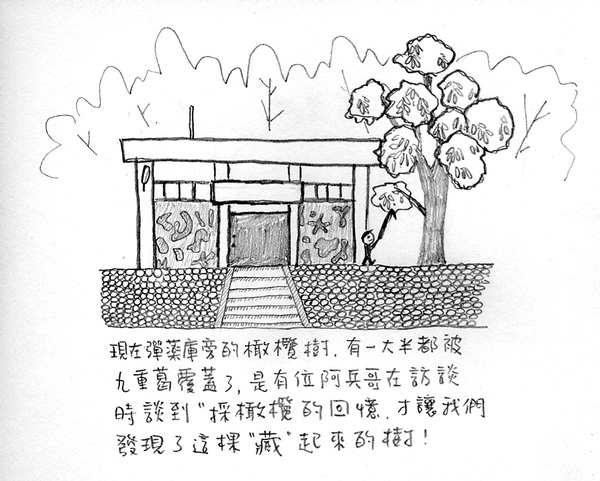 現在彈藥庫旁的橄欖樹,有一大半都被
九重葛覆蓋了,是有位阿兵哥在訪談
時談到"採橄欖的回憶,才讓我們
發現了這棵"藏"起來的樹!